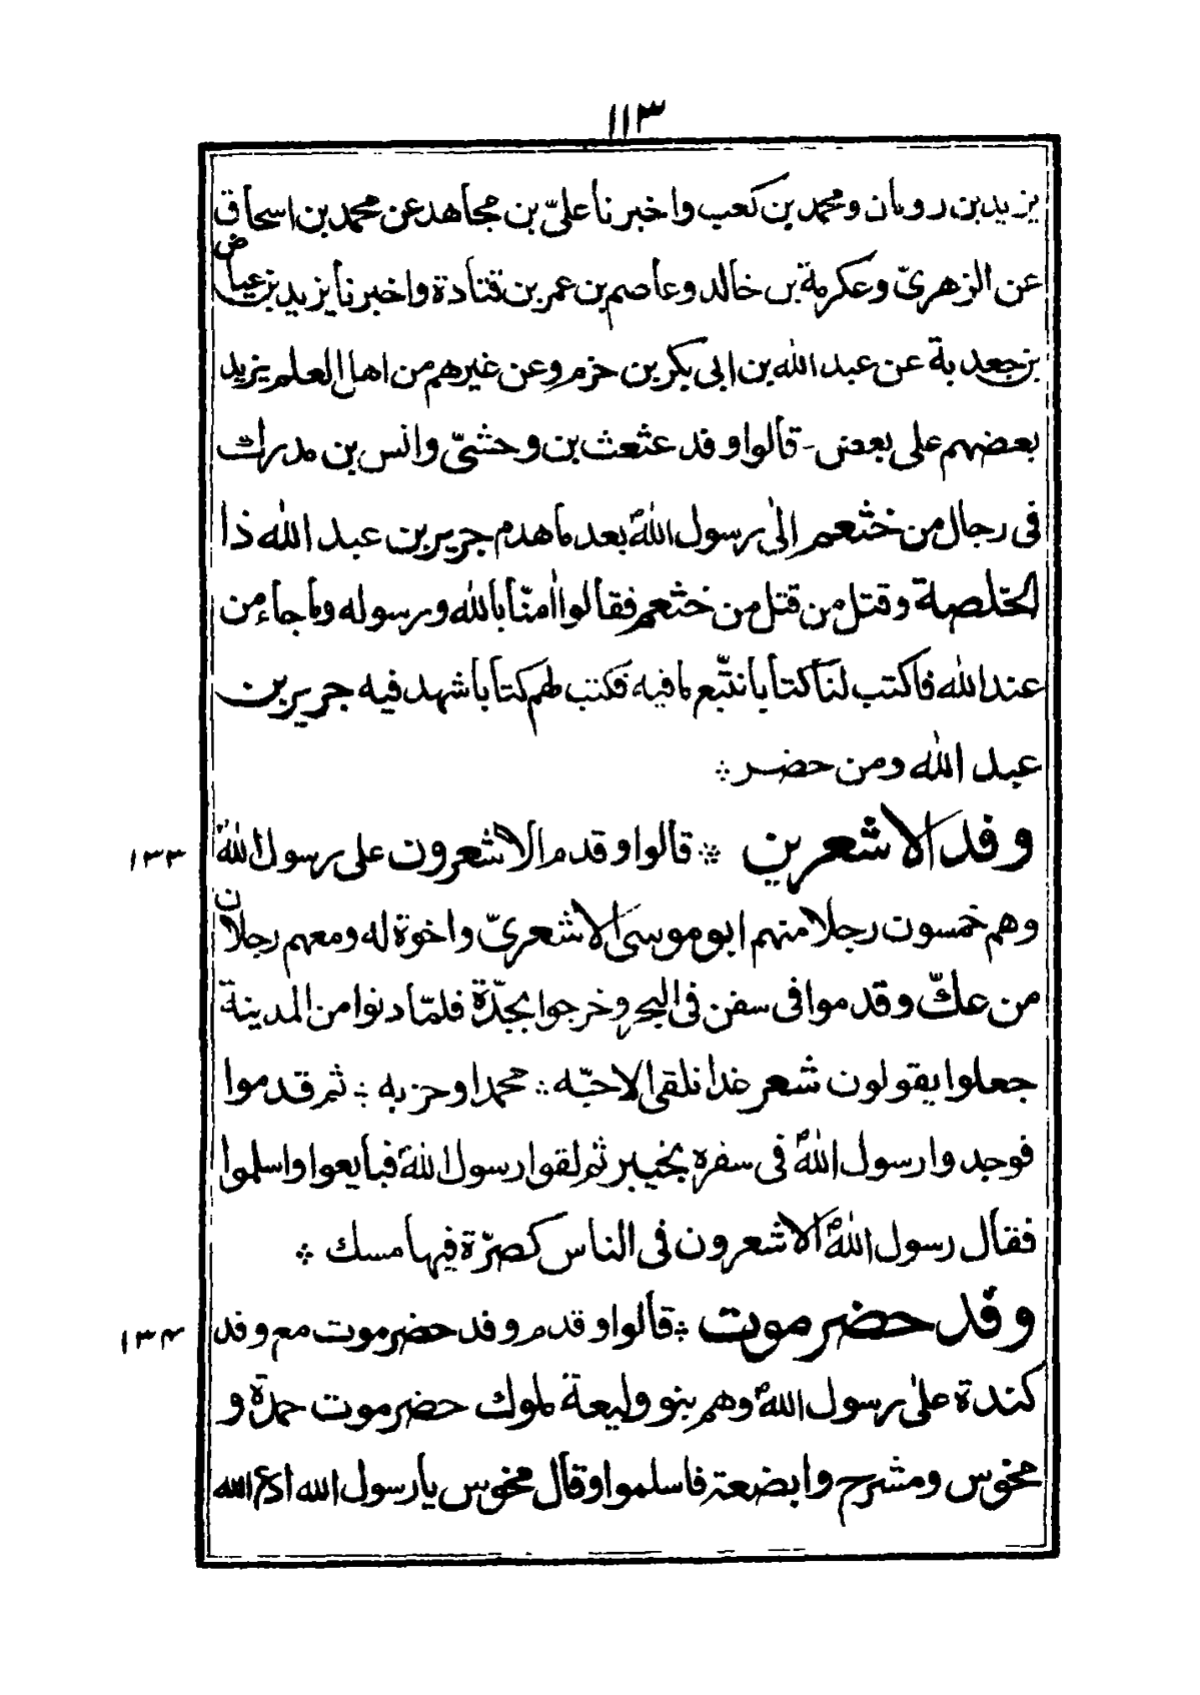 ١١٣
يزيد بن رومان ومحمد بن كعب واخبرنا علىّ بن مجاهد عن محمد بن اسحاق
عن الزهرىّ وعكرمة بن خالد وعاصم بن عمر بن قتادة واخبرنا يزيد بن عياض
بن جعدبة عن عبد الله بن ابى بكر بن حزم وعن غيرهم من اهل العلم يزيد
بعضهم على بعض - قالوا وفد عثعث بن وحشىّ وانس بن مدرك
فى رجال من خثعم الى رسول اللهؐ بعد ما هدم جرير بن عبد الله ذا
الخلصة وقتل من قتل من خثعم فقالوا اٰمنّا بالله ورسوله وما جاء من
عند الله فاكتب لنا كتابا نتّبع ما فيه فكتب لهم كتابا شهد فيه جرير بن
عبد الله ومن حضر ※
وفد الاشعرين ※ قالوا وقدم الاشعرون على رسول اللهؐ
١٣٣
وهم خمسون رجلا منهم ابو موسى الاشعرىّ واخوة له ومعهم رجلان
من عكّ وقدموا فى سفن فى البحر وخرجوا بجدّة فلمّا دنوا من المدينة
جعلوا يقولون شعر غدا نلقى الاحبّه ※ محمدا وحزبه ※ ثم قدموا
فوجدوا رسول اللهؐ فى سفره بخيبر ثم لقوا رسول اللهؐ فبايعوا واسلموا
فقال رسول اللهؐ الاشعرون فى الناس كصرّة فيها مسك ※
وفد حضرموت ※ قالوا وقدم وفد حضرموت مع وفد
١٣٤
كندة على رسول اللهؐ وهم بنو وليعة ملوك حضرموت حمدة و
مخوس ومشرح وابضعة فاسلموا وقال مخوس يا رسول الله ادع الله